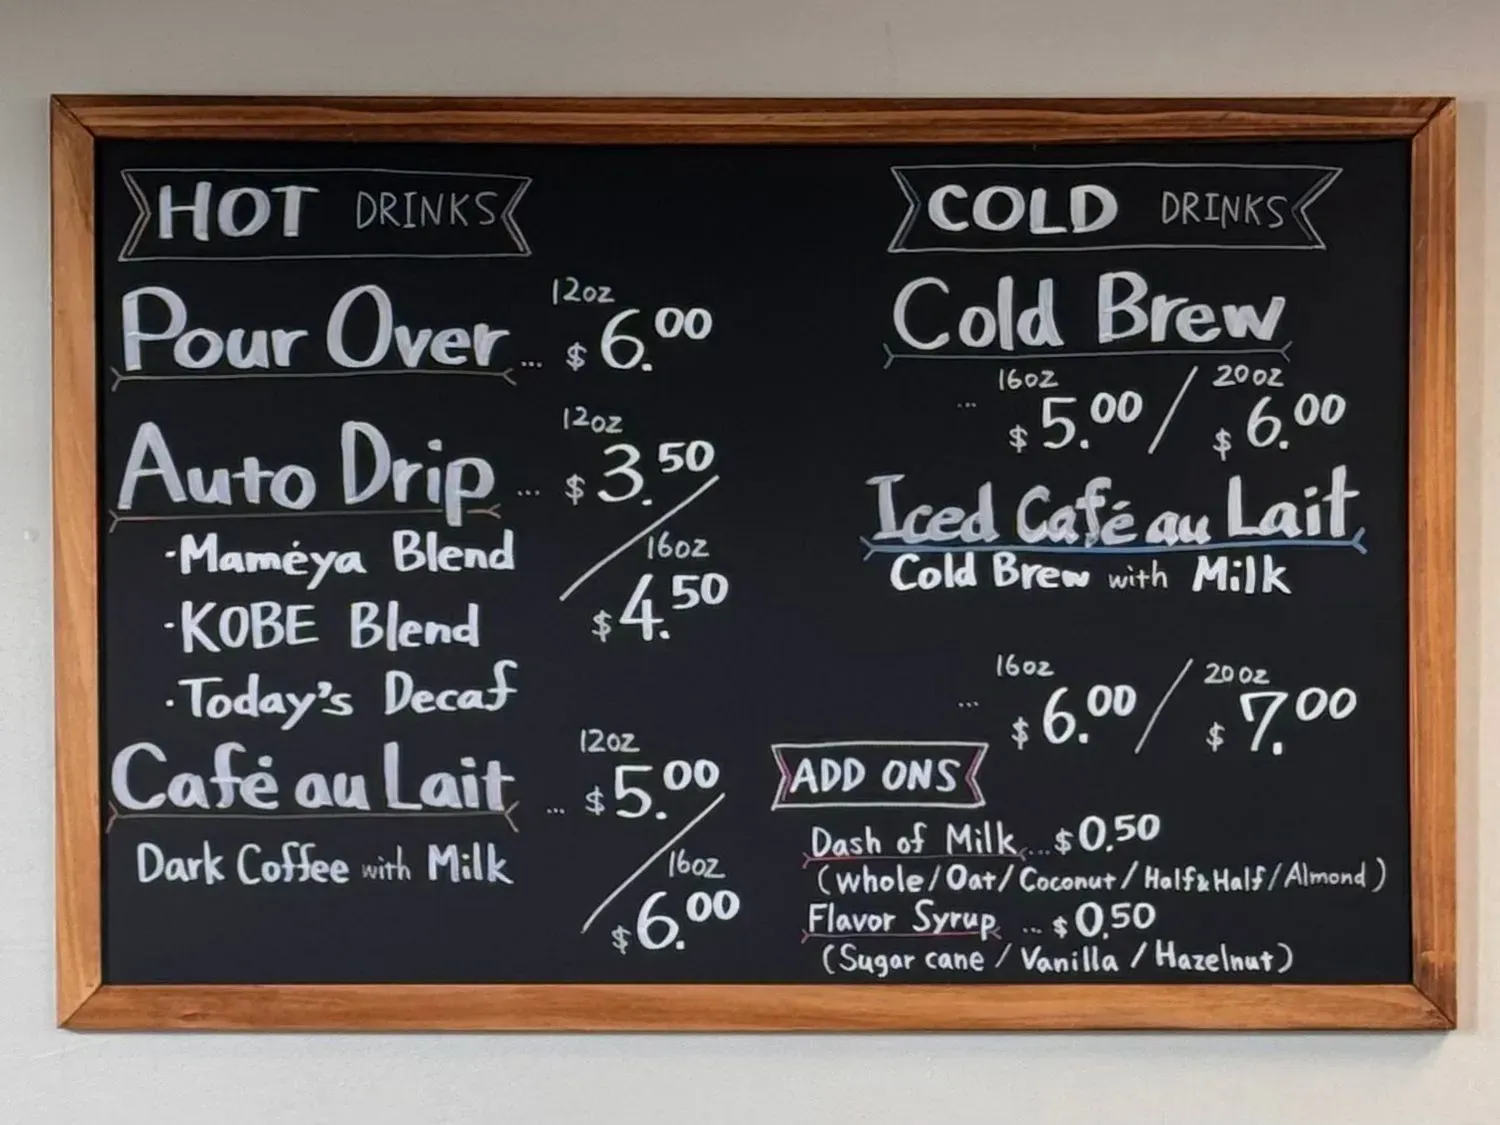 HOT DRINKS
Pour Over ... 12oz $6.00
Auto Drip ... 12oz $3.50 / 16oz $4.50
·Mamėya Blend
·KOBE Blend
·Today's Decaf
Café au Lait ... 12oz $5.00 / 16oz $6.00
Dark Coffee with Milk
COLD DRINKS
Cold Brew
... 16oz $5.00 / 20oz $6.00
Iced Café au Lait
Cold Brew with Milk
... 16oz $6.00 / 20oz $7.00
ADD ONS
Dash of Milk ... $0.50
(Whole/Oat/Coconut/Half&Half/Almond)
Flavor Syrup ... $0.50
(Sugar cane / Vanilla / Hazelnut)